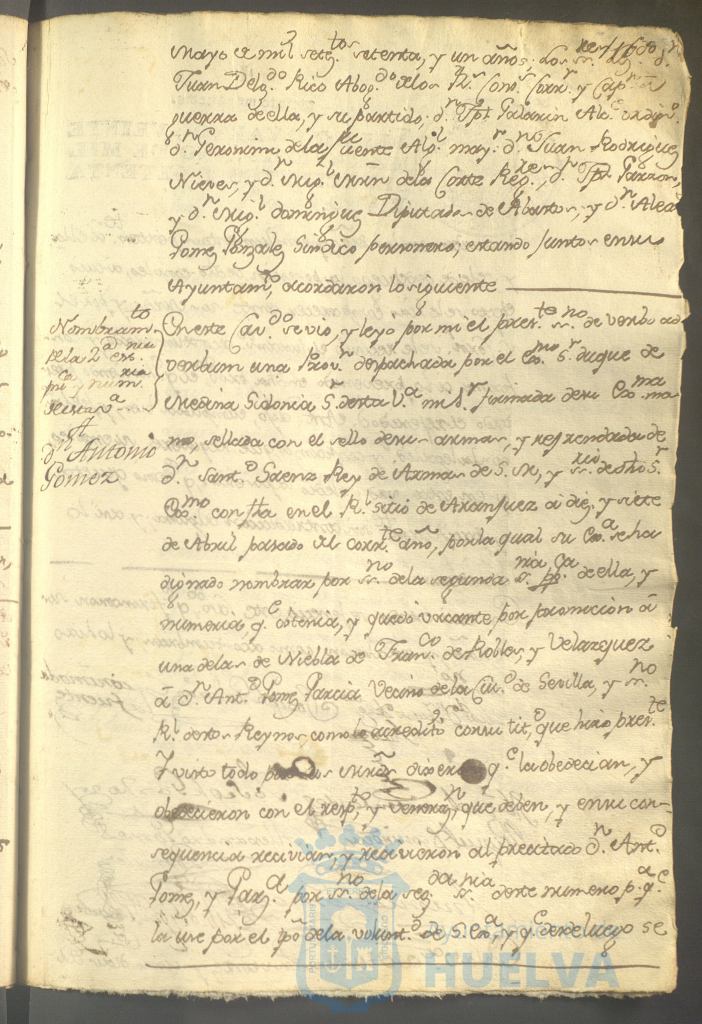 Mayo de mil setz.tos setenta, y un años; los ss.res Liz.do d.n
Juan Delg.do Rico Abog.do delos R.s Cons. Corr.r y Cap.n a
guerra de ella, y su partido, d.n Palarin Alc.e ordin.o
d.n Geronimo de la fuente Alg.l may.r d.n Juan Rodriguez
Nieves, y d.n Mig.l Mrñ de la Corte Reg.res, d.n Garzon,
y d.n Mig.l dominguez Diputados de Abastos, y d.n Alex.o
Gomez Gonzalez Sindico personero; estando juntos en su
Ayuntam.to, acordaron lo siguiente
Nombram.to
pe la 2.da
pu.ca, num.ria
de esta v.a
A
d.n Antonio
Gomez
En este Cav.do se vio, y leyo por mi el pres.te ss.no de verbo ad
verbum una Prov.n despachada por el Ex.mo S.r duque de
Medina Sidonia S.r desta V.a mi S.r firmada de su Ex.ma ma
no, sellada con el sello de sus armas, y refrendada de
d.n Sant.o Saenz Rey de Armas de S. M, y ss.rio de dho S.r
Ex.mo con fha en el R.l sitio de Aranjuez a diez, y siete
de Abril pasado del corr.te año, por la qual su Ex.a se ha
dignado nombrar por ss.no de la segunda ss.nia pp.ca de ella, y
numeria, q.e obtenia, y quedó vacante por promocion á
una delas de Niebla de Fran.co de Robles, y Velazquez
á d.n Ant.o Gomez Garcia Vecino de la Ciu.d de Sevilla, y ss.no
R.l destos Reynos, como lo acreditó con su tit.o que hizo pres.te
Y visto todo por sus Mrds dixeron q.e la obedecian, y
obedecieron con el resp.to, y Veneraz.n, que deben, y en su con-
sequencia recivian, y recivieron al precitado d.n Ant.o
Gomez, y Garz.a por ss.no de la seg.da ss.nia deste numero p.a q.e
la use por el tpo dela volunt.d de S. Ex.a, y q.e desde luego se
Ayuntamiento de
HUELVA